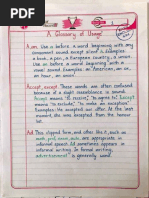 A Glossary of Usage
A,an. Use a before a word beginning with any
consonant sound except silent h. Examples:
a book, a pen, a European country, a
an before a word beginning with a
vowel sound. Examples: an American, an ox,
an hour, an onion.
Accept, except. These words are often confused
because of a slight resemblance in sound.
Accept means "to receive," "to agree to," Except
means "to exclude," "to make an exception."
Examples: He excepted our offer. They were
excepted from the obligation.
Ad. This clipped form, and others like it, such as
math, prof, exam, auto, are appropriate in
informal speech. Ad sometimes appears in
informal writing. In formal writing,
advertisement is generally used.